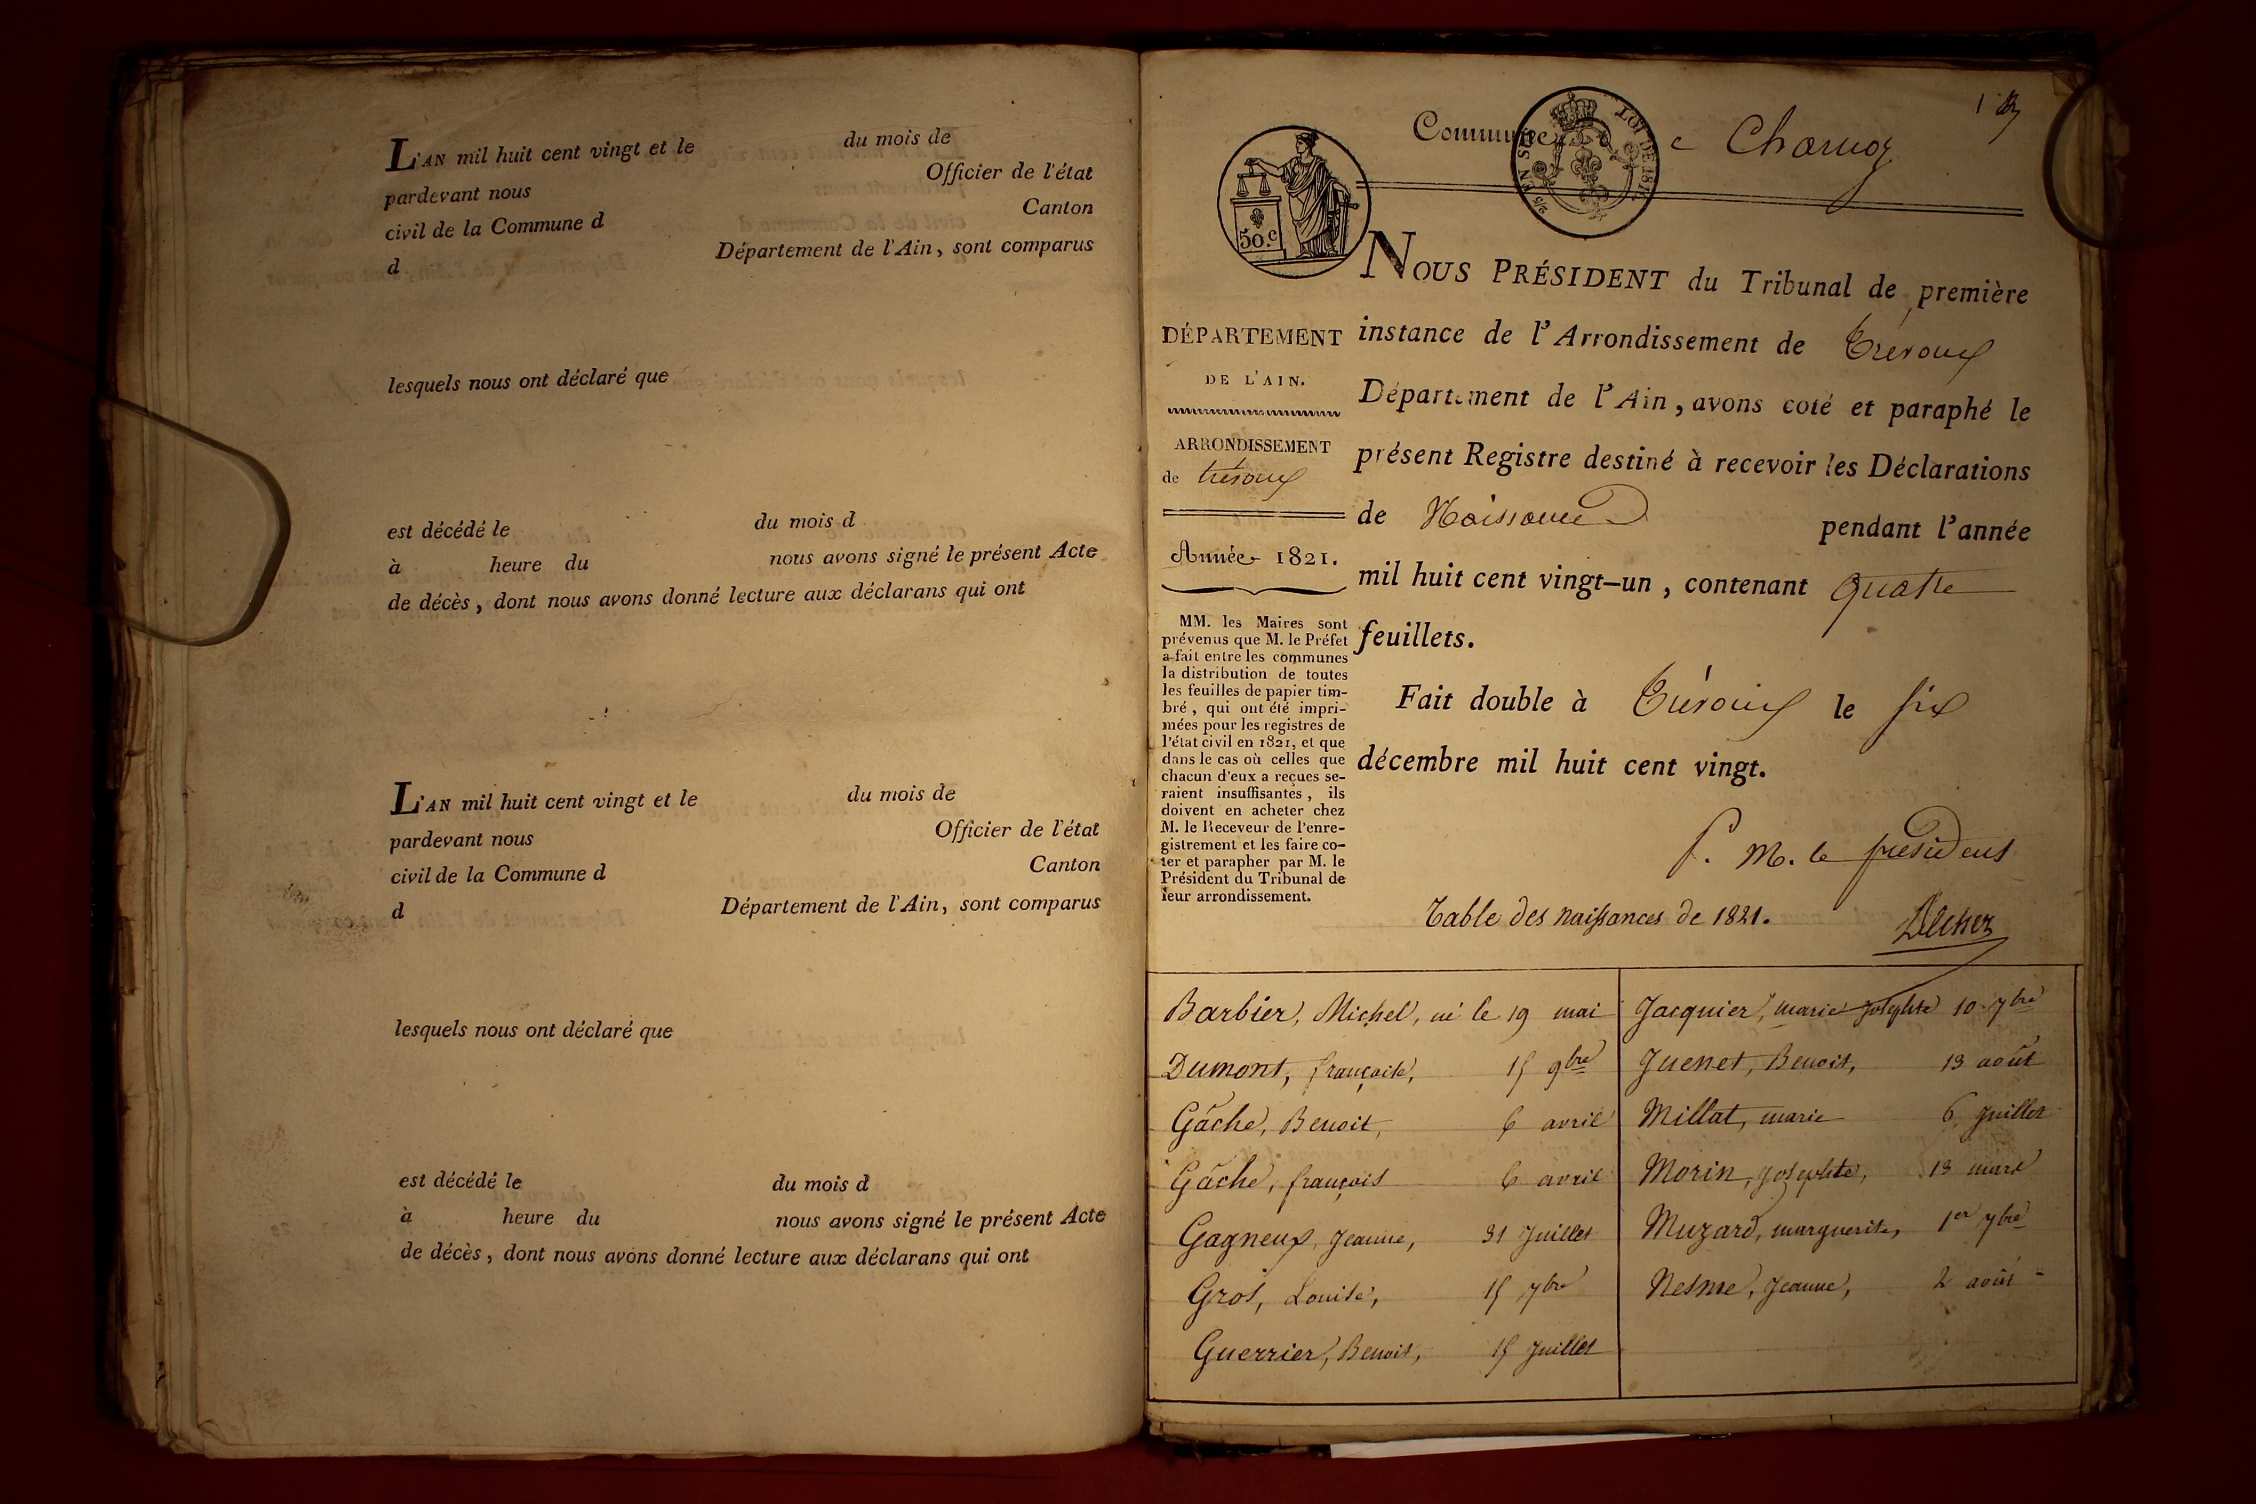 L'AN mil huit cent vingt et le du mois de
pardevant nous Officier de l'état
civil de la Commune d Canton
d Département de l'Ain, sont comparus
lesquels nous ont déclaré que
est décédé le du mois d
à heure du nous avons signé le présent Acte
de décès, dont nous avons donné lecture aux déclarans qui ont
L'AN mil huit cent vingt et le du mois de
pardevant nous Officier de l'état
civil de la Commune d Canton
d Département de l'Ain, sont comparus
lesquels nous ont déclaré que
est décédé le du mois d
à heure du nous avons signé le présent Acte
de décès, dont nous avons donné lecture aux déclarans qui ont
Commune Charnoz
LOI DE 181
EN SUS
50.c
DÉPARTEMENT
DE L'AIN.
ARRONDISSEMENT
de trévoux
Année 1821.
MM. les Maires sont
prévenus que M. le Préfet
a fait entre les communes
la distribution de toutes
les feuilles de papier tim-
bré, qui ont été impri-
mées pour les registres de
l'état civil en 1821, et que
dans le cas où celles que
chacun d'eux a reçues se-
raient insuffisantes, ils
doivent en acheter chez
M. le Receveur de l'enre-
gistrement et les faire co-
ter et parapher par M. le
Président du Tribunal de
leur arrondissement.
NOUS PRÉSIDENT du Tribunal de première
instance de l'Arrondissement de Trévoux
Département de l'Ain, avons coté et paraphé le
présent Registre destiné à recevoir les Déclarations
de Naissance pendant l'année
mil huit cent vingt-un, contenant quatre
feuillets.
Fait double à Trévoux le six
décembre mil huit cent vingt.
P. M. le président
Table des naissances de 1821.
Barbier, Michel, né le 19 mai
Dumont, françoise, 15 9bre
Gâche, Benoit, 6 avril
Gâche, françois 6 avril
Gagneux, Jeanne, 31 Juillet
Gros, Louise, 15 7bre
Guerrier, Benoit, 15 Juillet
Jacquier, marie Josephte 10 7bre
Juenet, Benoit, 13 août
Millat, marie 6 Juillet
Morin, Josephte, 13 mars
Muzard, marguerite, 1er 7bre
Nesme, Jeanne, 2 août